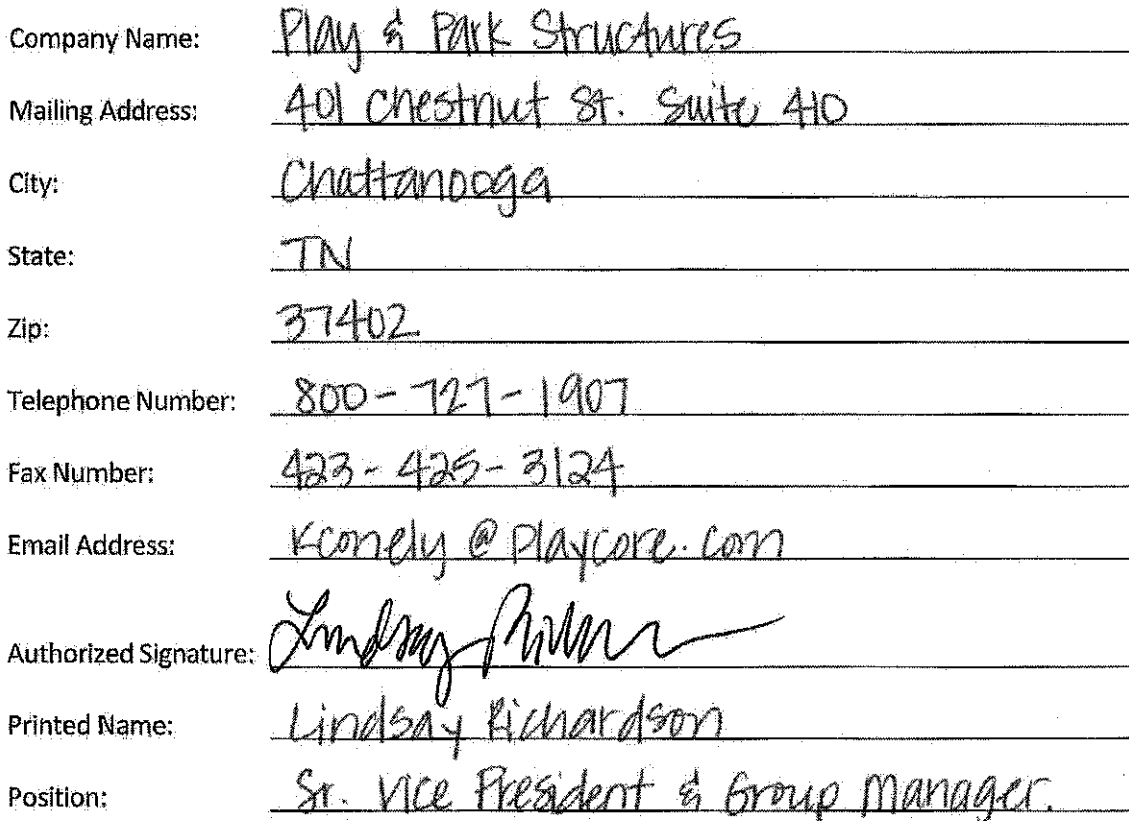 Company Name: Play & Park Structures
Mailing Address: 401 Chestnut St. Suite 410
City: Chattanooga
State: TN
Zip: 37402
Telephone Number: 800-727-1907
Fax Number: 423-425-3124
Email Address: Kconely@playcore.com
Authorized Signature: Lindsay
Printed Name: Lindsay Richardson
Position: Sr. Vice President & Group Manager.